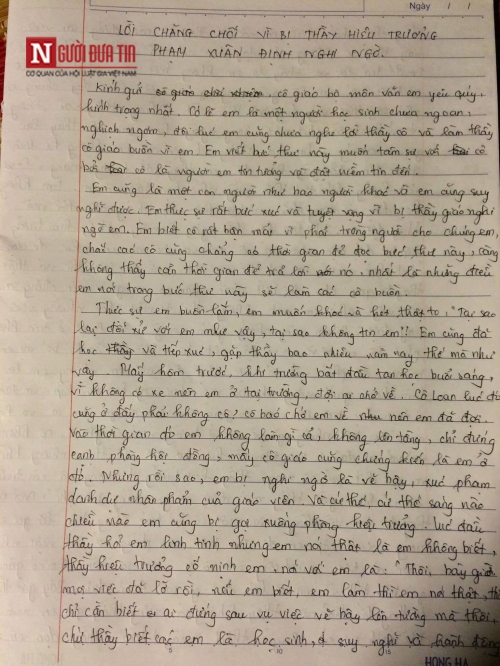 Ngày / /
LỜI CHĂNG CHỐI VÌ BỊ THẦY HIỆU TRƯỞNG
NGƯỜI ĐƯA TIN
CƠ QUAN CỦA HỘI LUẬT GIA VIỆT NAM
PHẠM XUÂN ĐỊNH NGHI NGỜ.
Kính gửi cô giáo chủ nhiệm, cô giáo bộ môn văn em yêu quý,
kính trọng nhất. Có lẽ em là một người học sinh chưa ngoan,
nghịch ngợm, đôi lúc em cũng chưa nghe lời thầy cô và làm thầy
cô giáo buồn vì em. Em viết bức thư này muốn tâm sự với cô
bởi cô là người em tin tưởng và đặt niềm tin đến.
Em cũng là một con người như bao người khác và em cũng suy
nghĩ được. Em thực sự rất bức xúc và tuyệt vọng vì bị thầy giáo nghi
ngờ em. Em biết cô rất bận mấy vì phải trông người cho chúng em,
chắc các cô cũng chẳng có thời gian để đọc bức thư này, cũng
không thấy cần thời gian để trả lời nó, nhất là những điều
em nói trong bức thư này sẽ làm các cô buồn.
Thực sự em buồn lắm, em muốn khóc và hét thật to: "Tại sao
lại đối xử với em như vậy, tại sao không tin em". Em cũng đã
học và tiếp xúc, gặp thầy bao nhiêu năm nay thế mà như
vậy. Mấy hôm trước, khi trường bắt đầu tan học buổi sáng,
vì không có xe nên em ở tại trường, đợi ai chở về. Cô Loan lúc đó
cũng ở đấy phải không cô? cô bảo chở em về nên em đã đợi.
vào thời gian đó em không làm gì cả, không lên tầng, chỉ đứng
cạnh phòng hội đồng, mấy cô giáo cũng chứng kiến là em ở
đó. Nhưng rồi sao, em bị nghi ngờ là vẽ bậy, xúc phạm
danh dự nhân phẩm của giáo viên. Và cứ thế, cứ thế sáng nào
chiều nào em cũng bị gọi xuống phòng hiệu trưởng. lúc đầu
thầy hỏi em linh tinh nhưng em nói thật là em không biết,
thầy hiệu trưởng cố nịnh em, nói với em là: "Thôi, bây giờ
mọi việc đã lỡ rồi, nếu em biết, em làm thì em nói thật, thầy
chỉ cần biết ai đứng sau vụ việc vẽ bậy lên tường mà thôi,
chứ thầy biết các em là học sinh, suy nghĩ và hành động
HONG HA